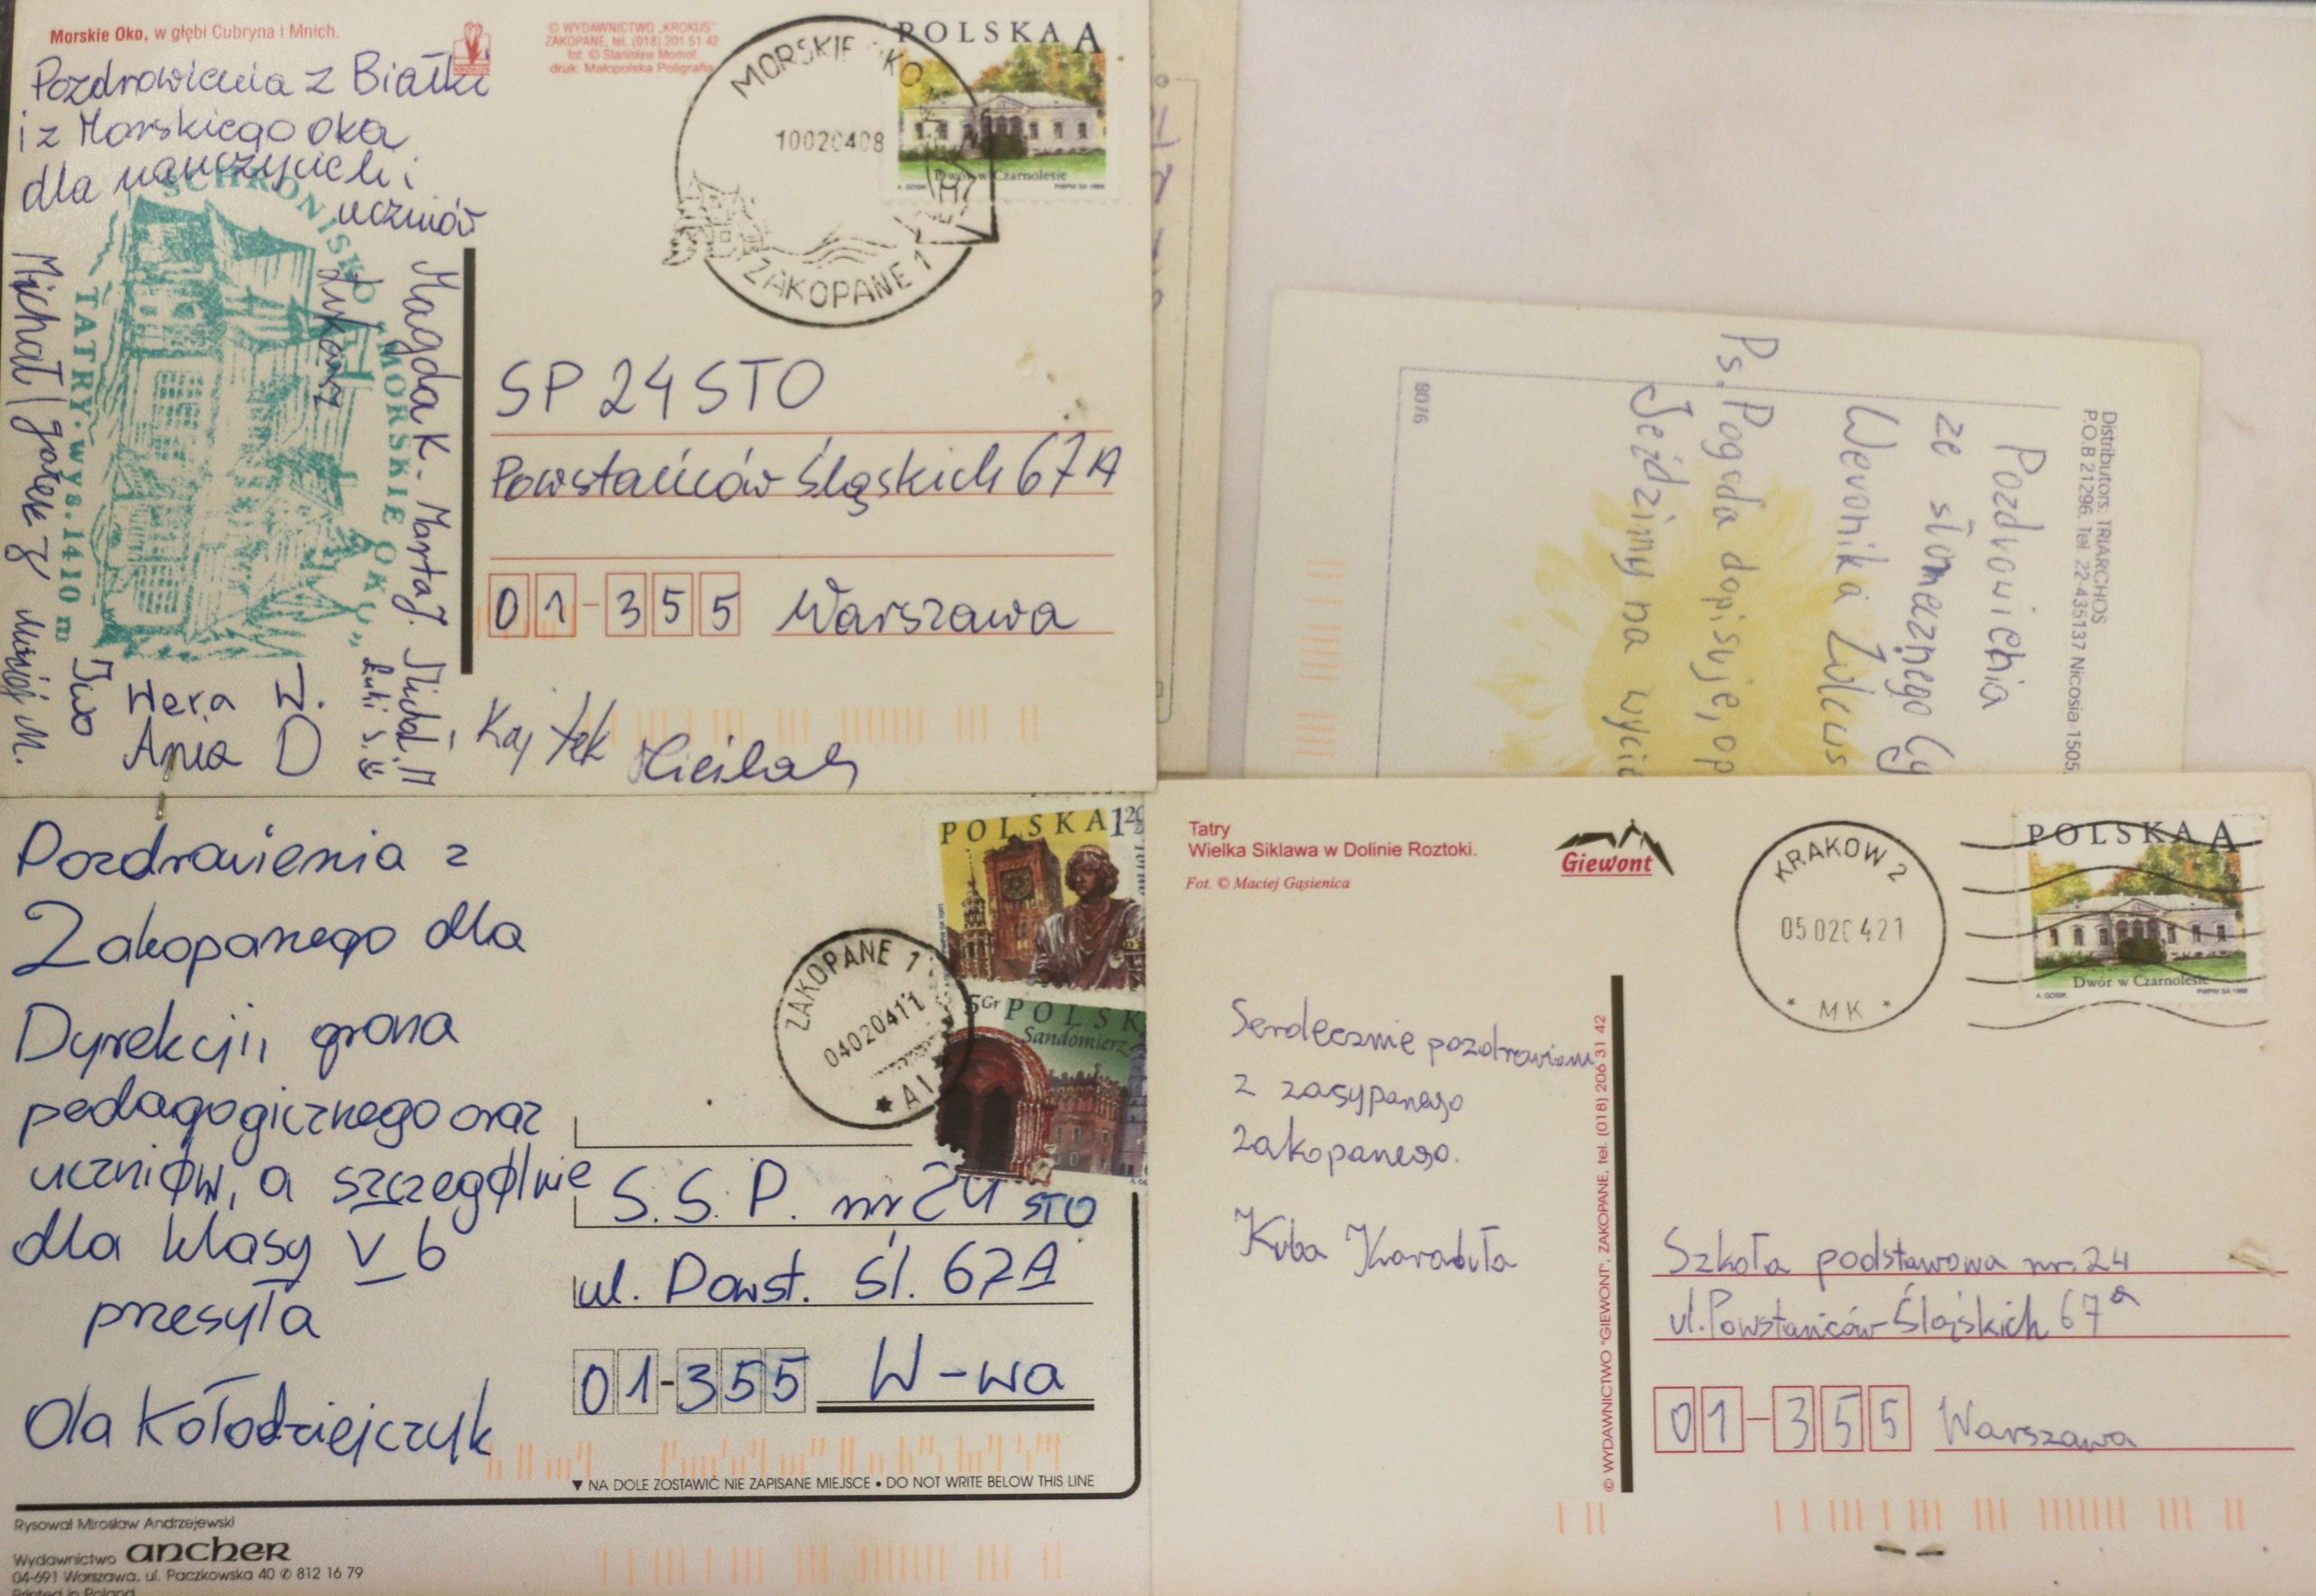 Morskie Oko, w głębi Cubryna i Mnich.
© WYDAWNICTWO „KROKUS"
ZAKOPANE, tel. (018) 201 51 42
fot. © Stanisław Momot
druk: Małopolska Poligrafia
POLSKA A
Dwór w Czarnolesie
MORSKIE OKO
10020408
ZAKOPANE 1
Pozdrowienia z Białki
i z Morskiego oka
dla nauczycieli i
uczniów
SCHRONISKO „MORSKIE OKO"
TATRY. wys. 1410 m
Łukasz
Magda K. Marta J. Michał M
Luki S.
Michał
Iwo
Wera W.
Ania D
Kajtek
SP 24 STO
Powstańców Śląskich 67A
01-355 Warszawa
8076
Distributors: TRIARCHOS
P.O.B 21296, Tel. 22-435137 Nicosia 1505,
Pozdrowienia
ze słonecznego Cy
Weronika
Ps. Pogoda dopisuje, op
Jeździmy na wycie
Pozdrowienia z
Zakopanego dla
Dyrekcji, grona
pedagogicznego oraz
uczniów, a szczególnie
dla klasy V b
przesyła
Ola Kołodziejczyk
POLSKA 1²⁰
5Gr POLSK
Sandomierz
ZAKOPANE 1
04020411
* A1
S.S.P. nr 24 STO
ul. Powst. Śl. 67A
01-355 W-wa
▼ NA DOLE ZOSTAWIĆ NIE ZAPISANE MIEJSCE • DO NOT WRITE BELOW THIS LINE
Rysował Mirosław Andrzejewski
Wydawnictwo ancher
04-691 Warszawa, ul. Paczkowska 40 ✆ 812 16 79
Printed in Poland
Tatry
Wielka Siklawa w Dolinie Roztoki.
Fot. © Maciej Gąsienica
Giewont
KRAKOW 2
05020421
* MK *
POLSKA A
Dwór w Czarnolesie
Serdecznie pozdrawiam
z zasypanego
Zakopanego.
Kuba
© WYDAWNICTWO "GIEWONT", ZAKOPANE, tel. (018) 206 31 42
Szkoła podstawowa nr. 24
ul. Powstańców Śląskich 67a
01-355 Warszawa